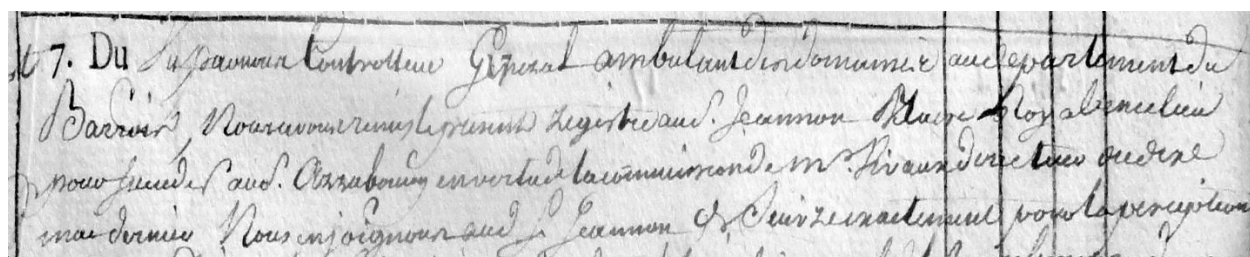 7. Du Controlleur General ambulant des domaines au departement du
Barrois, Nous avons remis le present Registre au S. Jeannon Nre Royal en ce lieu
pour succeder au S. en vertu de la commission de Mr. directeur du dixe
mai dernier Nous enjoignons aud. S. Jeannon de Suivre exactement pour la perception